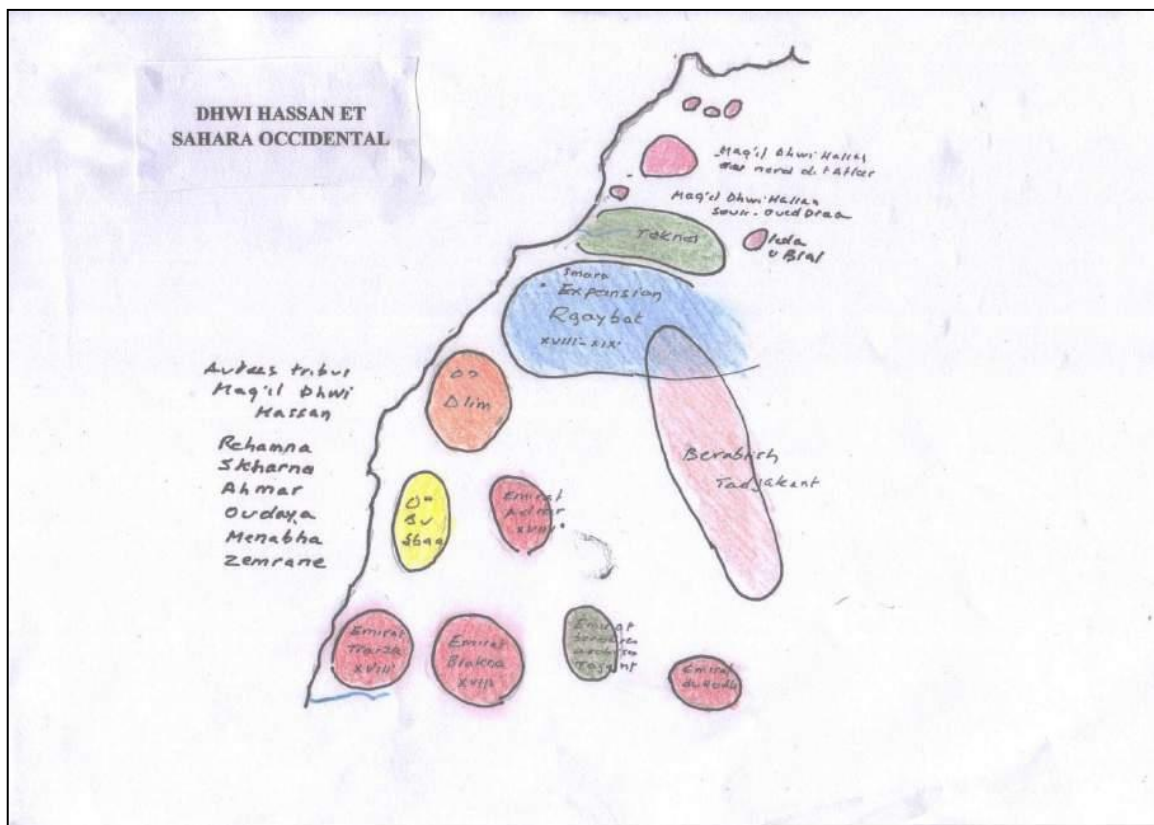 DHWI HASSAN ET
SAHARA OCCIDENTAL
Maq'il Dhwi Hassan
nord de l'Atlas
Maq'il Dhwi Hassan
Souss - oued Draa
Teknas
Ida
u Blal
Smara
Expansion
Rgaybat
XVIII - XIX°
Autres tribus
Maq'il Dhwi
Hassan
Rehamna
Skharna
Ahmar
Oudaya
Menabha
Zemrane
Dlim
Berabish
Tadjakant
Bu
Sbaa
Emirat
Adrar
XVIII°
Emirat
Trarza
XVIII°
Emirat
Brakna
XVIII
Emirat
Tagant
Emirat
du Hodh